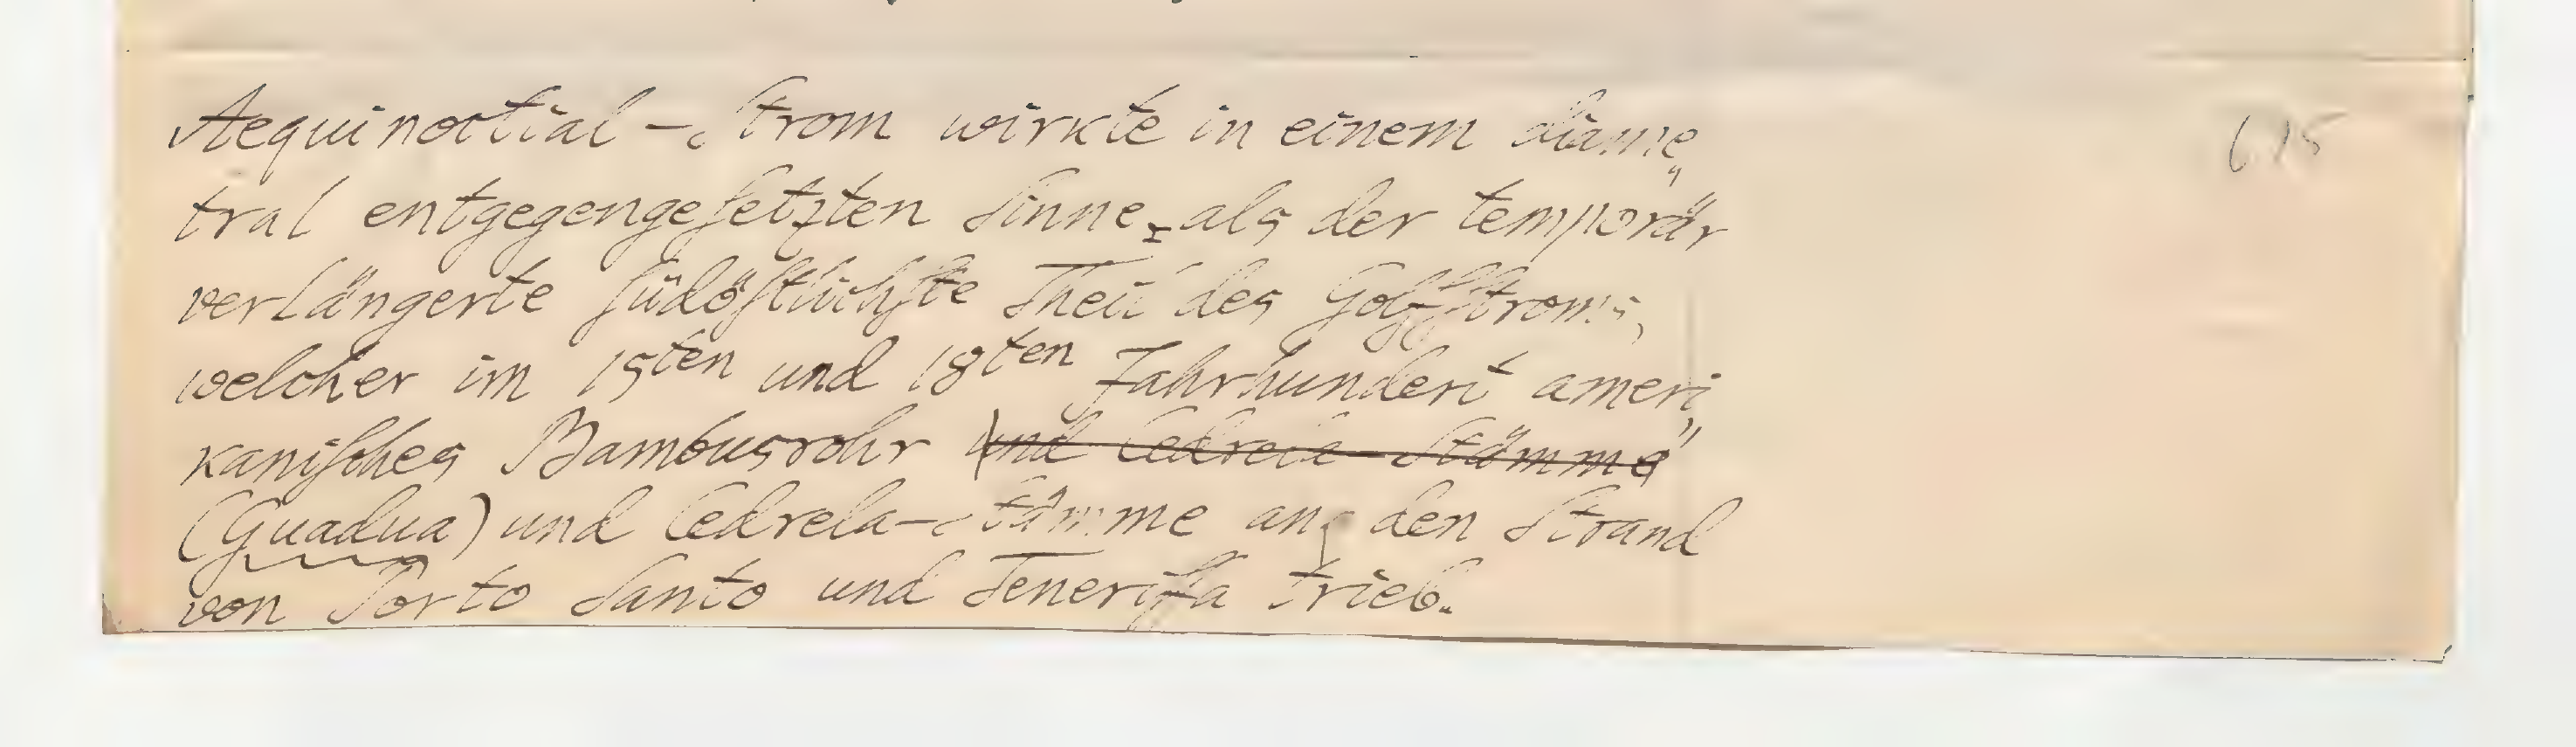 Aequinoctial-Strom wirkte in einem diame„
tral entgegengesetzten Sinne, als der temporär
verlängerte südöstlichste Theil des Golfstroms,
welcher im 15ten und 18ten Jahrhundert ameri„
kanisches Bambusrohr und Cedrela-Stämme
(Guadua) und Cedrela-Stämme an den Strand
von Porto Santo und Teneriffa trieb.
615